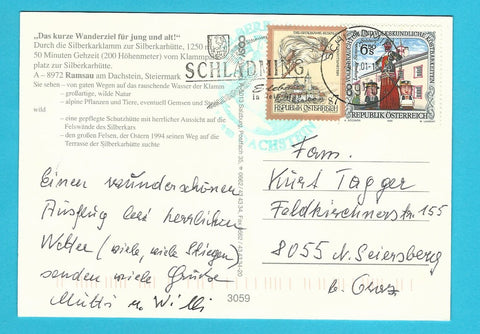 „Das kurze Wanderziel für jung und alt!"
Durch die Silberkarklamm zur Silberkarhütte, 1250 m
50 Minuten Gehzeit (200 Höhenmeter) vom Klamm
platz zur Silberkarhütte.
A – 8972 Ramsau am Dachstein, Steiermark
Sie sehen – von guten Wegen auf das rauschende Wasser der Klamm
– großartige, wilde Natur
– alpine Pflanzen und Tiere, eventuell Gemsen und
wild
– eine gepflegte Schutzhütte mit herrlicher Aussicht auf die
Felswände des Silberkars
– den großen Felsen, der Ostern 1994 seinen Weg auf die
Terrasse der Silberkarhütte suchte
8970
SCHLADMING
8970
REPUBLIK ÖSTERREICH
REPUBLIK ÖSTERREICH
DACHSTEIN
Einen wunderschönen
Ausflug bei herrlichen
Wetter (viele, viele Stiegen)
senden viele Grüße
Mutti u. Willi
Fam.
Kurt Tagger
Feldkirchnerstr. 155
8055 N. Seiersberg
b. Graz
3059